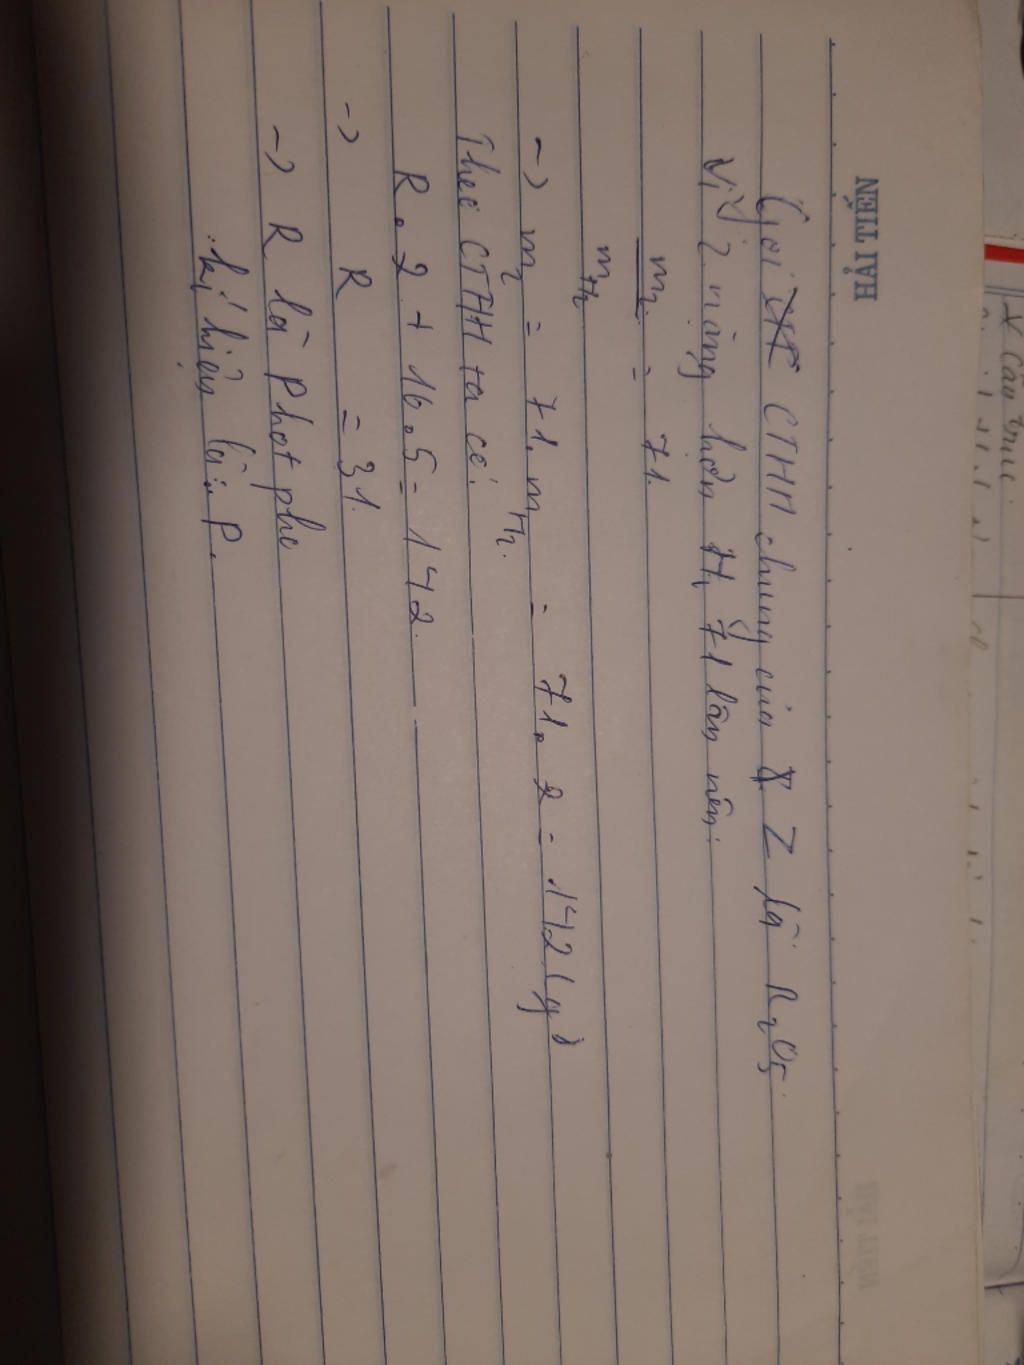 HẢI TIẾN
Gọi CTHH chung của Z là R₂O₅
Vì Z nặng hơn H₂ 71 lần nên:
m_Z / m_H₂ = 71.
-> m_Z = 71. m_H₂ = 71. 2 = 142 (g)
Theo CTHH ta có:
R . 2 + 16 . 5 = 142
-> R = 31.
-> R là Photpho
kí hiệu là: P.
* Cấu trúc.